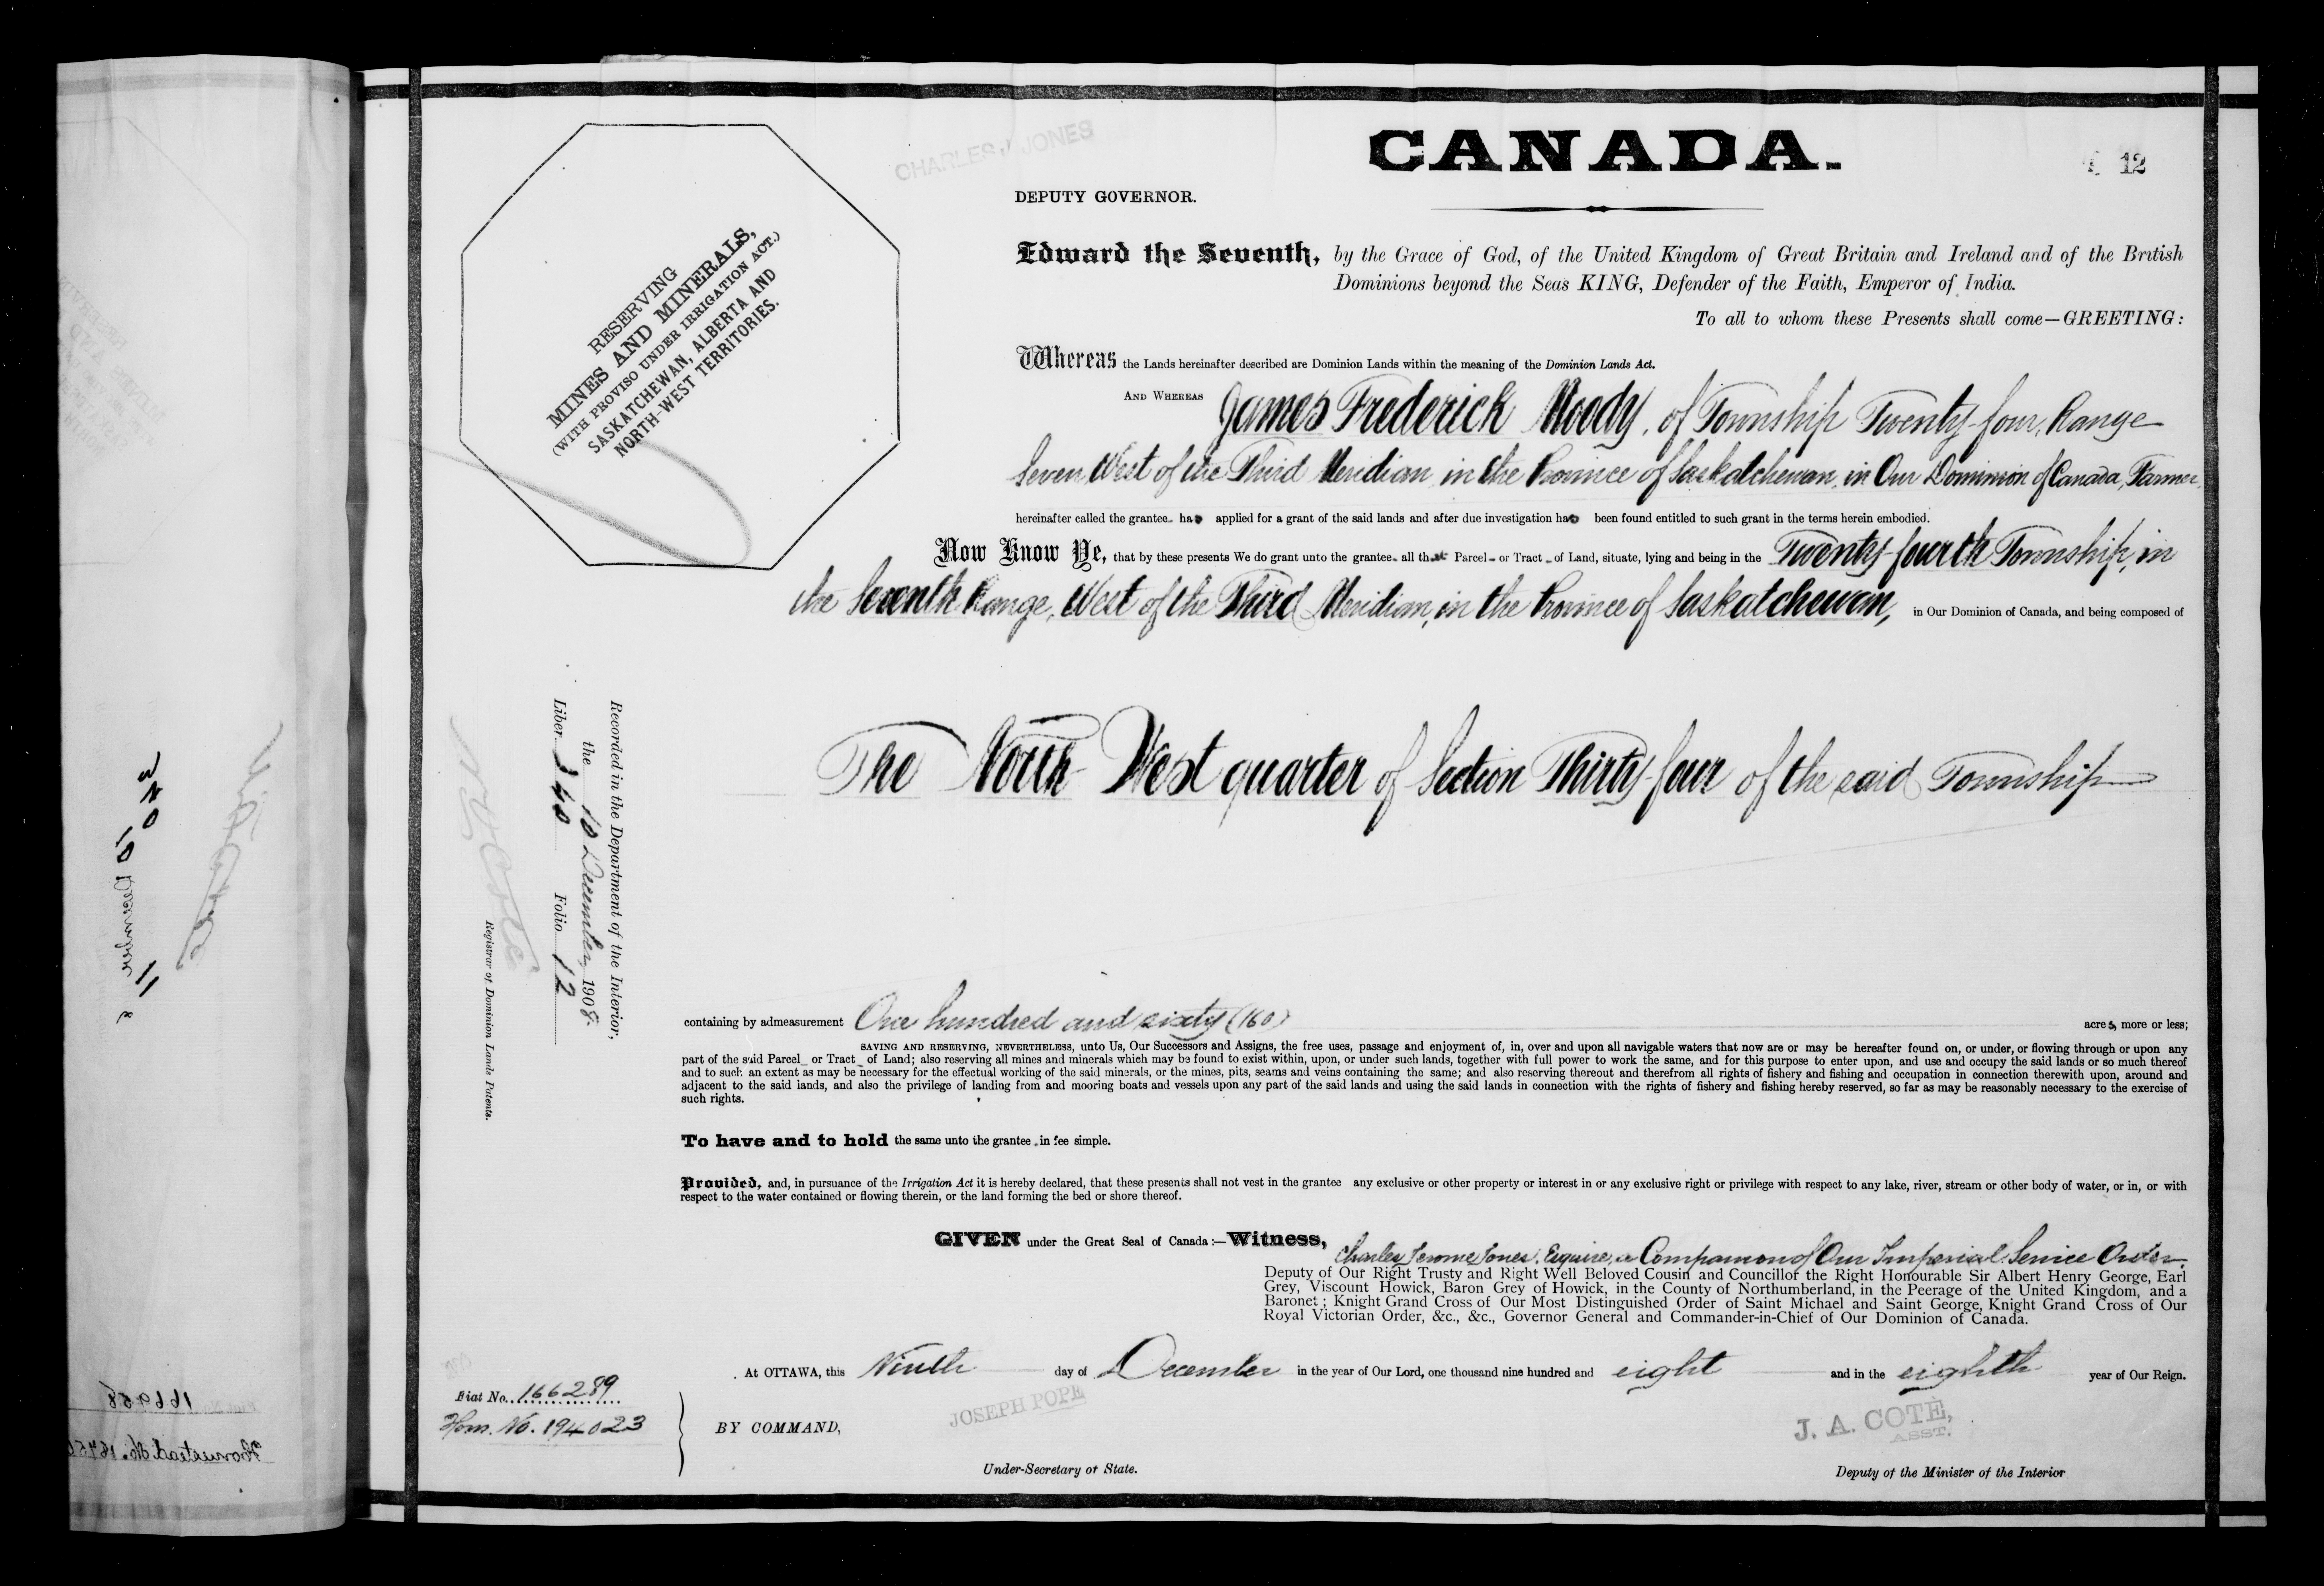 CHARLES J JONES
CANADA.
12
DEPUTY GOVERNOR.
RESERVING
MINES AND MINERALS,
(WITH PROVISO UNDER IRRIGATION ACT.)
SASKATCHEWAN, ALBERTA AND
NORTH-WEST TERRITORIES.
Edward the Seventh, by the Grace of God, of the United Kingdom of Great Britain and Ireland and of the British
Dominions beyond the Seas KING, Defender of the Faith, Emperor of India.
To all to whom these Presents shall come—GREETING:
Whereas the Lands hereinafter described are Dominion Lands within the meaning of the Dominion Lands Act.
AND WHEREAS James Frederick Moody, of Township Twenty-four, Range
Seven West of the Third Meridian in the Province of Saskatchewan, in Our Dominion of Canada, Farmer,
hereinafter called the grantee has applied for a grant of the said lands and after due investigation has been found entitled to such grant in the terms herein embodied.
Now Know Ye, that by these presents We do grant unto the grantee all that Parcel or Tract of Land, situate, lying and being in the Twenty-fourth Township, in
the Seventh Range, West of the Third Meridian, in the Province of Saskatchewan, in Our Dominion of Canada, and being composed of
The North West quarter of Section Thirty-four of the said Township
Recorded in the Department of the Interior,
the 10 December 1908.
Liber 340 Folio 12
N. G. Coté
Registrar of Dominion Lands Patents.
containing by admeasurement One hundred and sixty (160) acres, more or less;
SAVING AND RESERVING, NEVERTHELESS, unto Us, Our Successors and Assigns, the free uses, passage and enjoyment of, in, over and upon all navigable waters that now are or may be hereafter found on, or under, or flowing through or upon any
part of the said Parcel or Tract of Land; also reserving all mines and minerals which may be found to exist within, upon, or under such lands, together with full power to work the same, and for this purpose to enter upon, and use and occupy the said lands or so much thereof
and to such an extent as may be necessary for the effectual working of the said minerals, or the mines, pits, seams and veins containing the same; and also reserving thereout and therefrom all rights of fishery and fishing and occupation in connection therewith upon, around and
adjacent to the said lands, and also the privilege of landing from and mooring boats and vessels upon any part of the said lands and using the said lands in connection with the rights of fishery and fishing hereby reserved, so far as may be reasonably necessary to the exercise of
such rights.
To have and to hold the same unto the grantee in fee simple.
Provided, and, in pursuance of the Irrigation Act it is hereby declared, that these presents shall not vest in the grantee any exclusive or other property or interest in or any exclusive right or privilege with respect to any lake, river, stream or other body of water, or in, or with
respect to the water contained or flowing therein, or the land forming the bed or shore thereof.
GIVEN under the Great Seal of Canada:—Witness, Charles Jerome Jones, Esquire, a Companion of Our Imperial Service Order,
Deputy of Our Right Trusty and Right Well Beloved Cousin and Councillor the Right Honourable Sir Albert Henry George, Earl
Grey, Viscount Howick, Baron Grey of Howick, in the County of Northumberland, in the Peerage of the United Kingdom, and a
Baronet; Knight Grand Cross of Our Most Distinguished Order of Saint Michael and Saint George, Knight Grand Cross of Our
Royal Victorian Order, &c., &c., Governor General and Commander-in-Chief of Our Dominion of Canada.
At OTTAWA, this Ninth day of December in the year of Our Lord, one thousand nine hundred and eight and in the eighth year of Our Reign.
Fiat No. 166289
Hom. No. 194023
BY COMMAND,
JOSEPH POPE
J. A. COTE,
ASST.
Under-Secretary of State.
Deputy of the Minister of the Interior
340
10 December
11